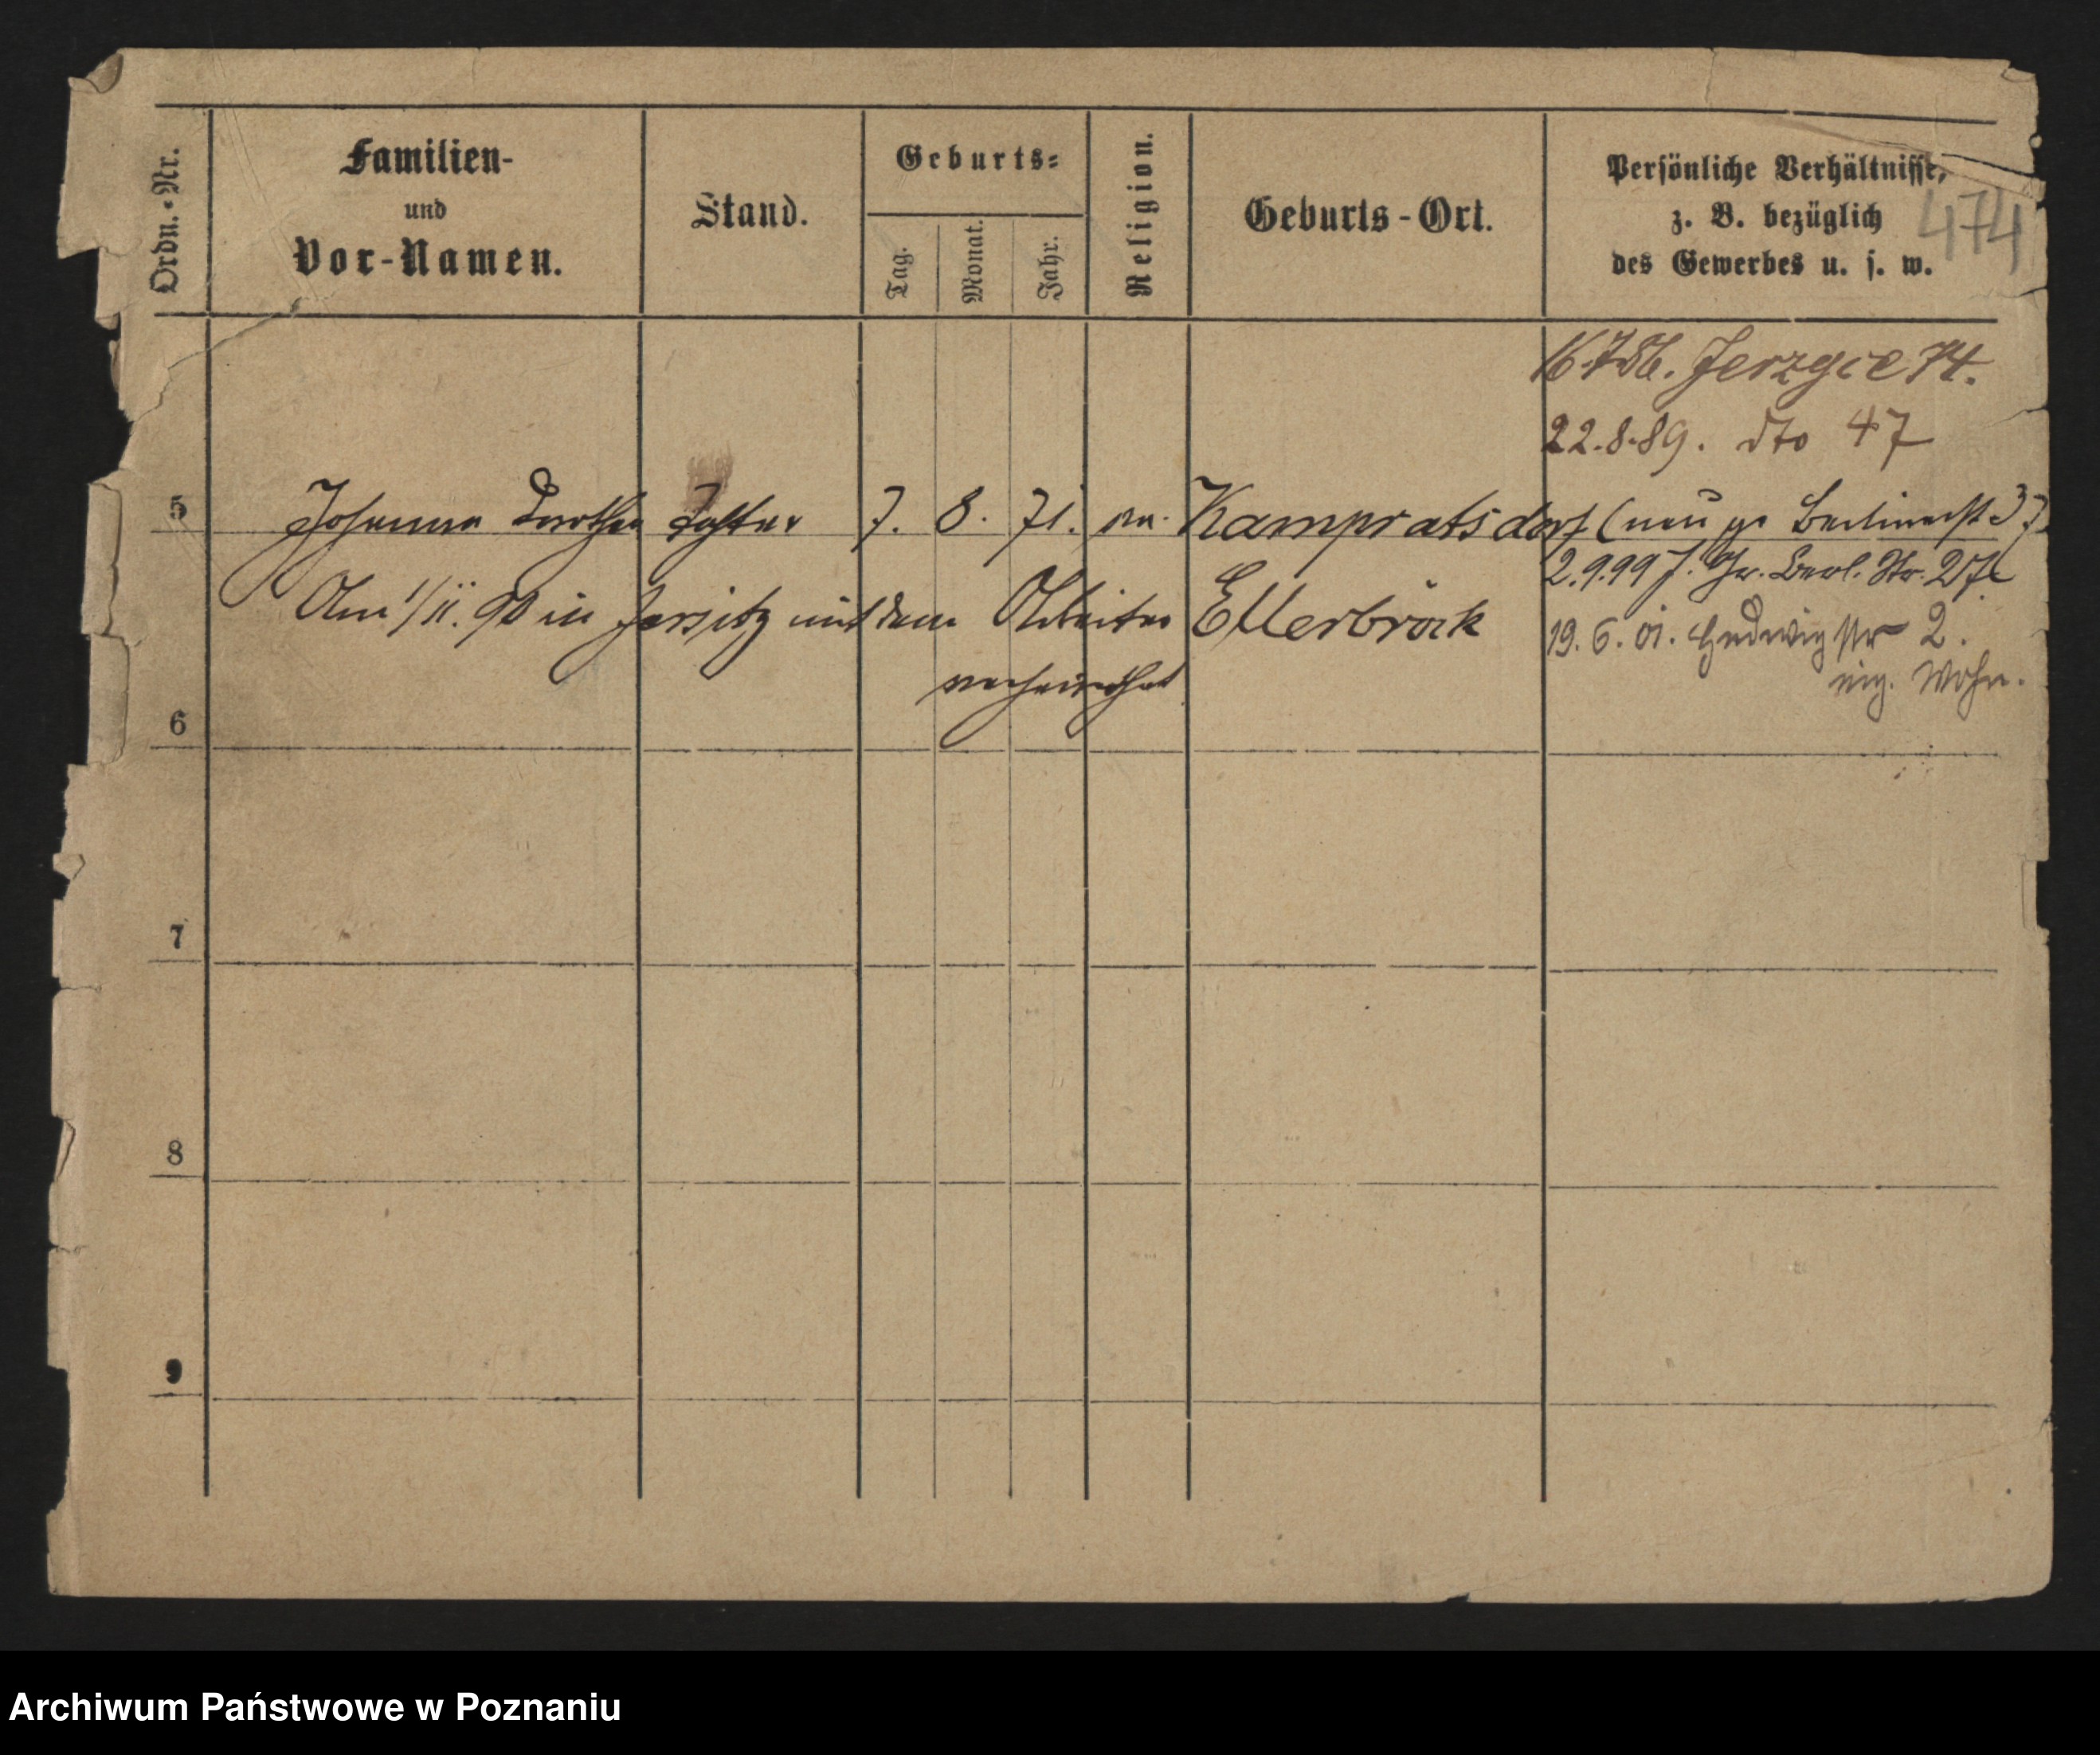 Ordn.-Nr.
Familien-
und
Vor-Namen.
Stand.
Geburts-
Tag.
Monat.
Jahr.
Religion.
Geburts-Ort.
Persönliche Verhältnisse,
z. B. bezüglich
des Gewerbes u. s. w.
474
Jerzyce 74.
22.8.89. dto 47
5 Johanna Dorothea Tochter 7. 8. 71. ev. Kampratsdorf (neu Berlinerst
2.9.99 Gr. Berl. Str.
Am 1/11. 90 in Jersitz mit dem Arbeiter Ellerbrock
19. 6. 01. Hedwigstr 2.
verheirathet
eig. Wohn.
6
7
8
9
Archiwum Państwowe w Poznaniu